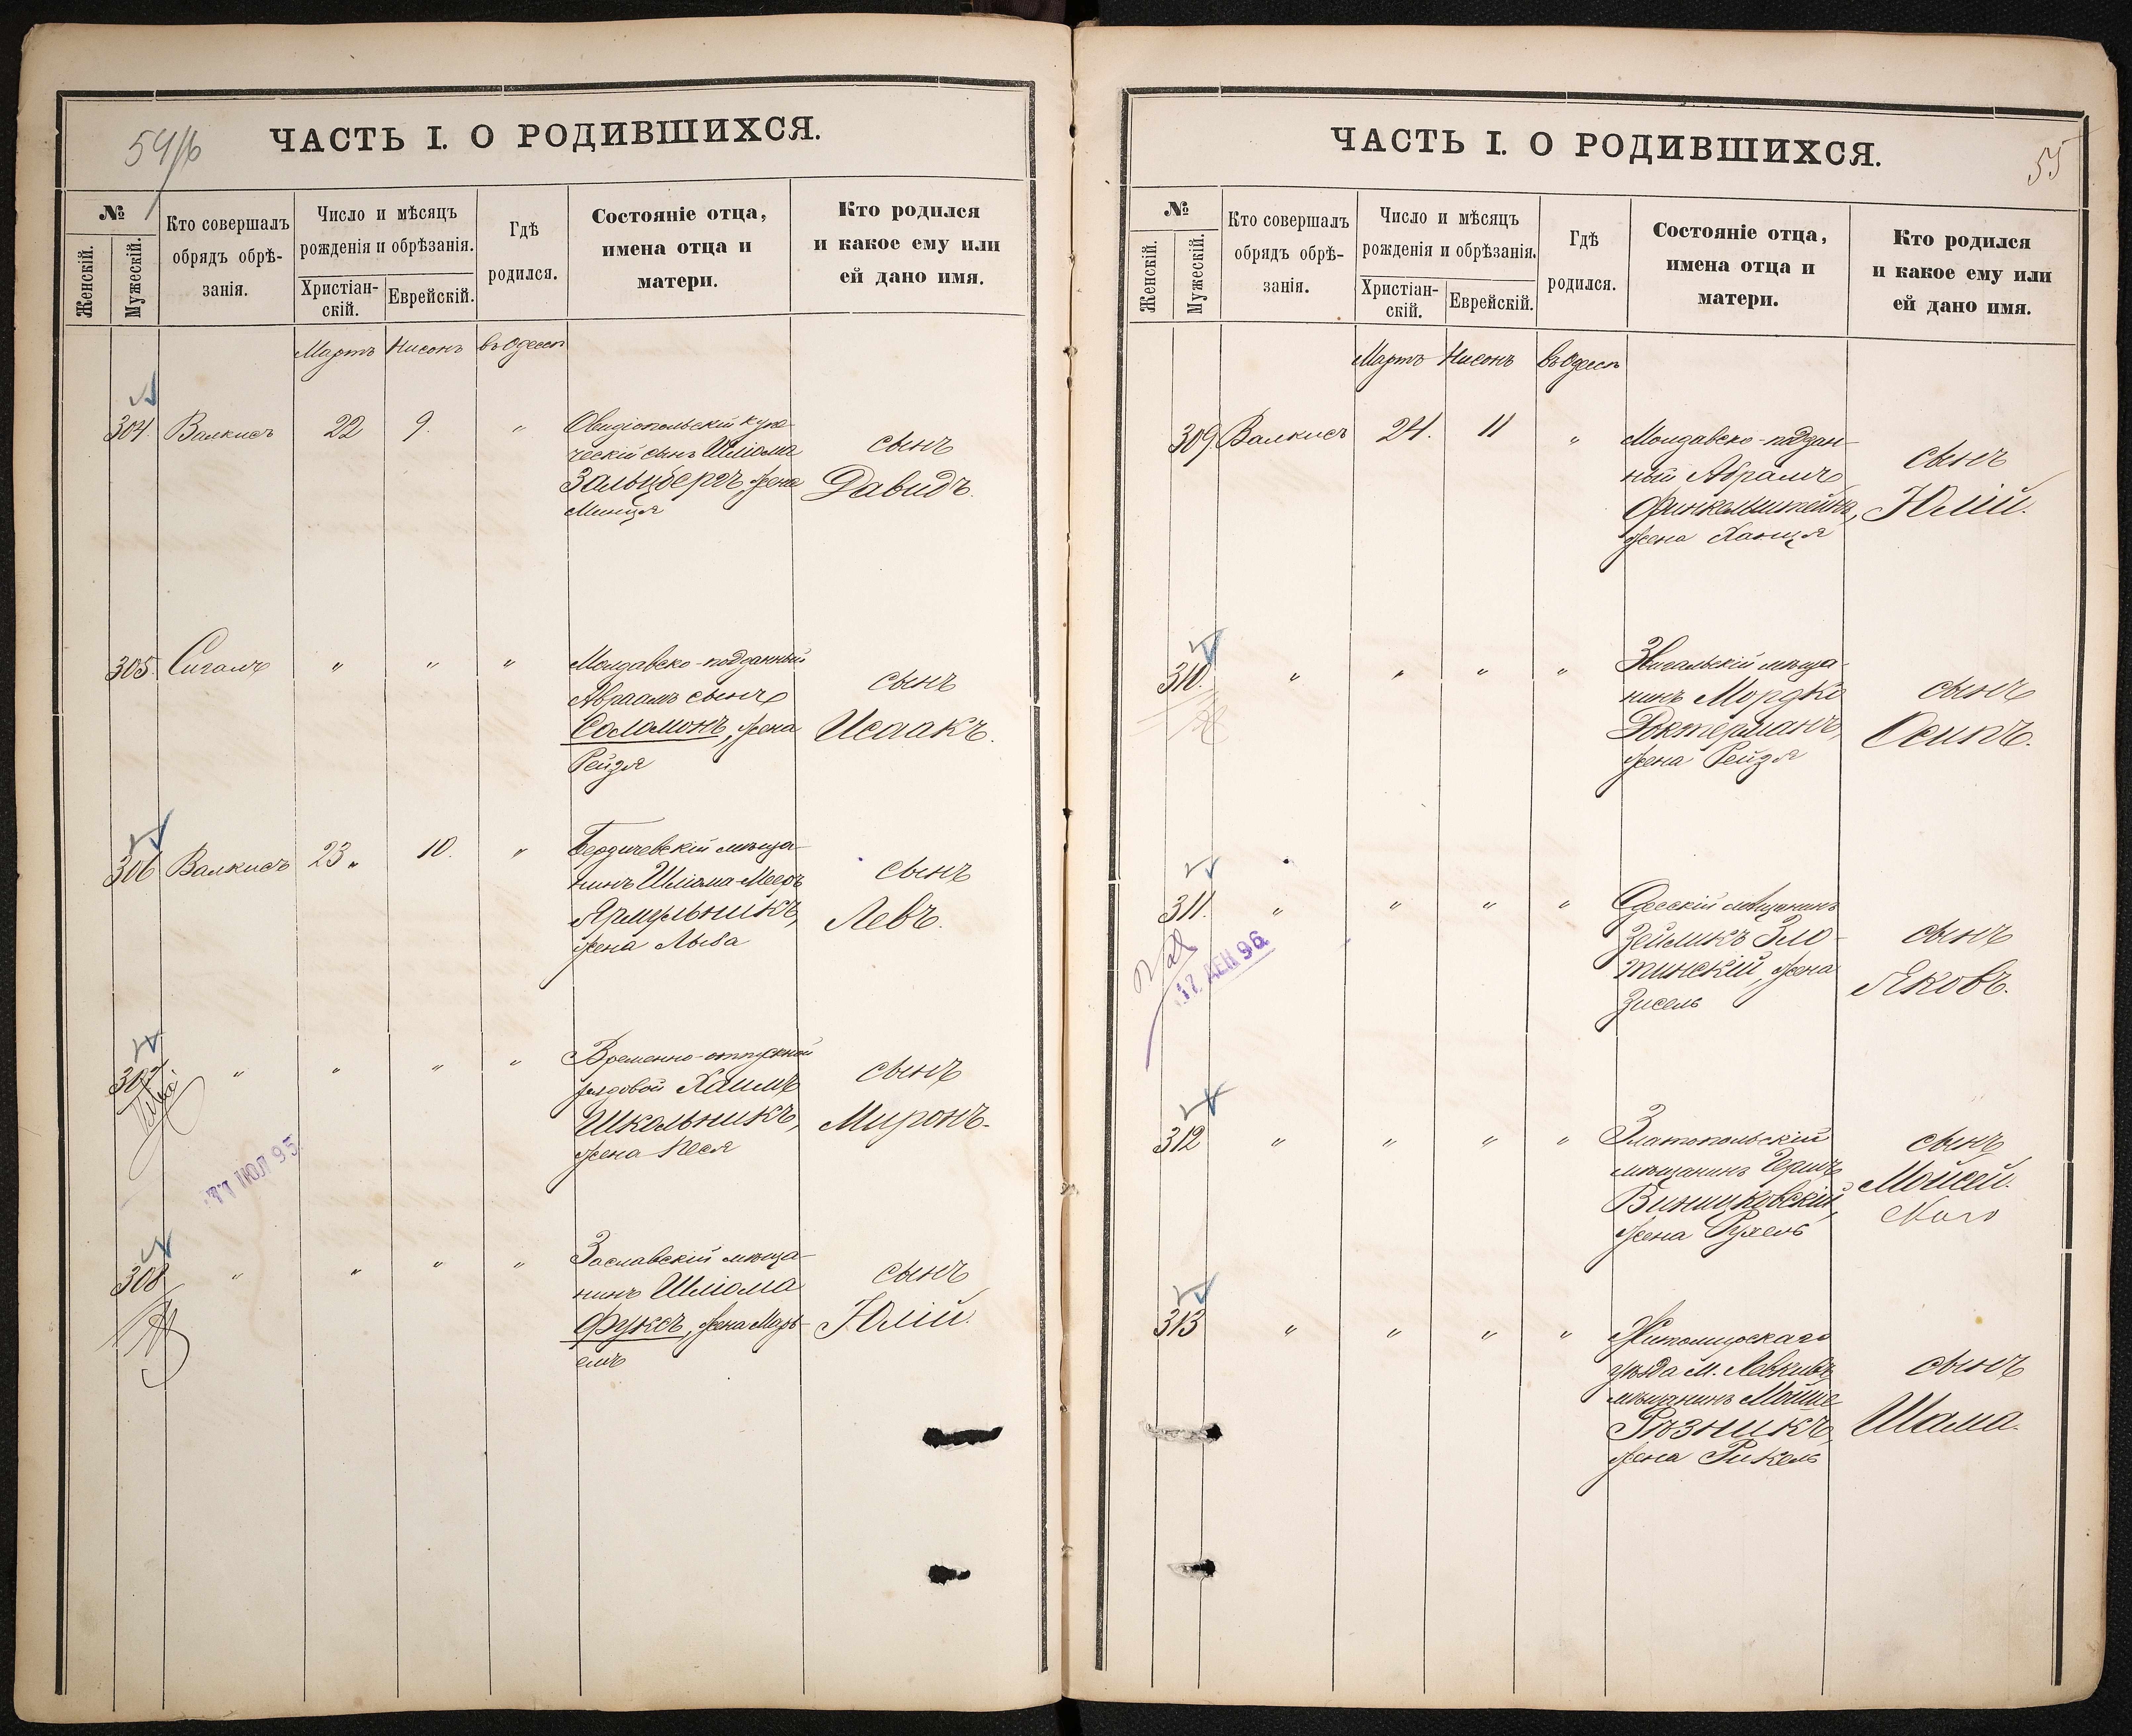 54/б
ЧАСТЬ I. О РОДИВШИХСЯ.
№
Женскій.
Мужескій.
Кто совершалъ
обрядъ обрѣ-
занія.
Число и мѣсяцъ
рожденія и обрѣзанія.
Христіан-
скій.
Еврейскій.
Гдѣ
родился.
Состояніе отца,
имена отца и
матери.
Кто родился
и какое ему или
ей дано имя.
Мартъ Нисонъ въ Одессѣ
304. Валкисъ 22 9. " Овидіопольскій купе-
ческій сынъ Шліома
Зальцбергъ, жена
Минця
сынъ
Давидъ.
305. Сигалъ " " " Молдавско-подданный
Авраамъ сынъ
Соломонъ, жена
Рейзя
сынъ
Исаакъ.
306 Валкисъ 23 " 10. " Бердичевскій мѣща-
нинъ Шліома-Мееръ
Ярмульникъ,
жена Лыба
сынъ
Левъ.
307 " " " " Временно-отпускной
рядовой Хаимъ
Школьникъ,
жена Песя
сынъ
Миронъ.
11 ІЮЛ 95
308 " " " " Заславскій мѣща-
нинъ Шліома
Фуксъ, жена Марь-
емъ
сынъ
Юлій.
55
ЧАСТЬ I. О РОДИВШИХСЯ.
№
Женскій.
Мужескій.
Кто совершалъ
обрядъ обрѣ-
занія.
Число и мѣсяцъ
рожденія и обрѣзанія.
Христіан-
скій.
Еврейскій.
Гдѣ
родился.
Состояніе отца,
имена отца и
матери.
Кто родился
и какое ему или
ей дано имя.
Мартъ Нисонъ въ Одессѣ
309. Валкисъ 24. 11 " Молдавско-поддан-
ный Абрамъ
Финкельштейнъ,
жена Ханця
сынъ
Юлій.
310. " " " " мѣща-
нинъ Мордко
Доктерманъ,
жена Рейзя
сынъ
Осипъ.
311. " " " " Одесскій мѣщанинъ
Зейликъ Зло-
тинскій, жена
Зисель
сынъ
Яковъ.
17 ДЕК 96
312 " " " " Златопольскій
мѣщанинъ Герш
Винниковскій,
жена Рухель
сынъ
Мойсей.
313 " " " " Житомирскаго
уѣзда м. Левковъ
мѣщанинъ Мойше
Рѣзникъ,
жена Рикель
сынъ
Шама.